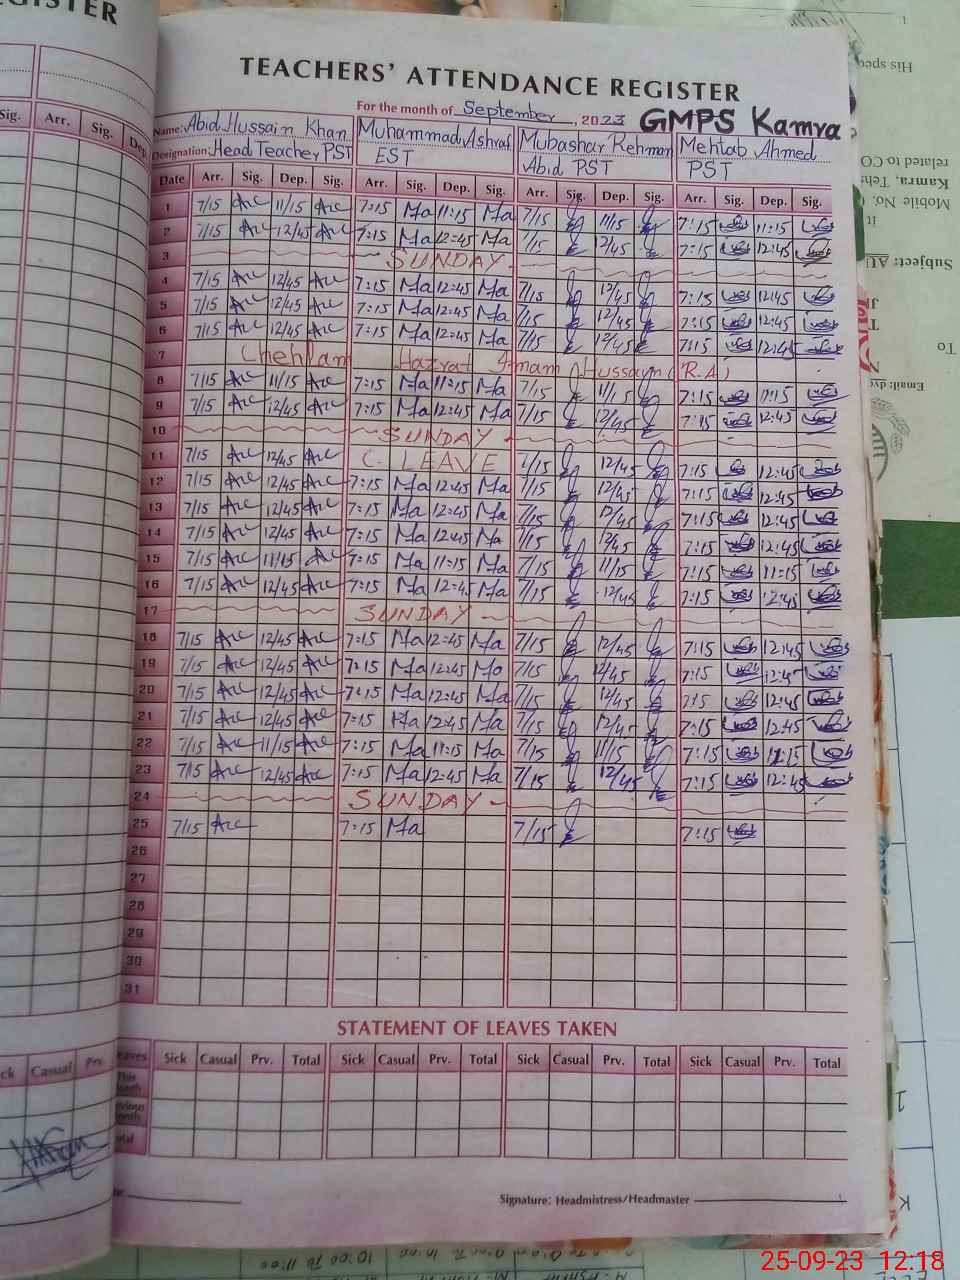 GISTER
TEACHERS' ATTENDANCE REGISTER
For the month of September, 2023 GMPS Kamra
Name: Abid Hussain Khan Muhammad Ashraf Mubashar Rehman Mehtab Ahmed
Designation: Head Teacher PST EST Abid PST PST
Sig. Arr. Sig. Dep
Date Arr. Sig. Dep. Sig. Arr. Sig. Dep. Sig. Arr. Sig. Dep. Sig. Arr. Sig. Dep. Sig.
1 7/15 11/15 7:15 Ma 11:15 Ma 7/15 11/15 7:15 11:15
2 7/15 12/45 7:15 Ma 12:45 Ma 7/15 12/45 7:15 12:45
3 SUNDAY
4 7/15 12/45 7:15 Ma 12:45 Ma 7/15 12/45 7:15 12:45
5 7/15 12/45 7:15 Ma 12:45 Ma 7/15 12/45 7:15 12:45
6 7/15 12/45 7:15 Ma 12:45 Ma 7/15 12/45 7:15 12:45
7 Chehlam Hazrat Imam Hussain (R.A)
8 7/15 11/15 7:15 Ma 11:15 Ma 7/15 11/15 7:15 11:15
9 7/15 12/45 7:15 Ma 12:45 Ma 7/15 12/45 7:15 12:45
10 SUNDAY
11 7/15 12/45 C. LEAVE 7/15 12/45 7:15 12:45
12 7/15 12/45 7:15 Ma 12:45 Ma 7/15 12/45 7:15 12:45
13 7/15 12/45 7:15 Ma 12:45 Ma 7/15 12/45 7:15 12:45
14 7/15 12/45 7:15 Ma 12:45 Ma 7/15 12/45 7:15 12:45
15 7/15 11/15 7:15 Ma 11:15 Ma 7/15 11/15 7:15 11:15
16 7/15 12/45 7:15 Ma 12:45 Ma 7/15 12/45 7:15 12:45
17 SUNDAY
18 7/15 12/45 7:15 Ma 12:45 Ma 7/15 12/45 7:15 12:45
19 7/15 12/45 7:15 Ma 12:45 Ma 7/15 12/45 7:15 12:45
20 7/15 12/45 7:15 Ma 12:45 Ma 7/15 12/45 7:15 12:45
21 7/15 12/45 7:15 Ma 12:45 Ma 7/15 12/45 7:15 12:45
22 7/15 11/15 7:15 Ma 11:15 Ma 7/15 11/15 7:15 11:15
23 7/15 12/45 7:15 Ma 12:45 Ma 7/15 12/45 7:15 12:45
24 SUNDAY
25 7/15 7:15 Ma 7/15 7:15
26
27
28
29
30
31
STATEMENT OF LEAVES TAKEN
Leaves Sick Casual Prv. Total Sick Casual Prv. Total Sick Casual Prv. Total Sick Casual Prv. Total
ck Casual Prv.
Signature: Headmistress/Headmaster
His spec
related to CO
Kamra, Tehs
Mobile No.
Subject: AU
To
Email:
10:00 To 11:00
25-09-23 12:18